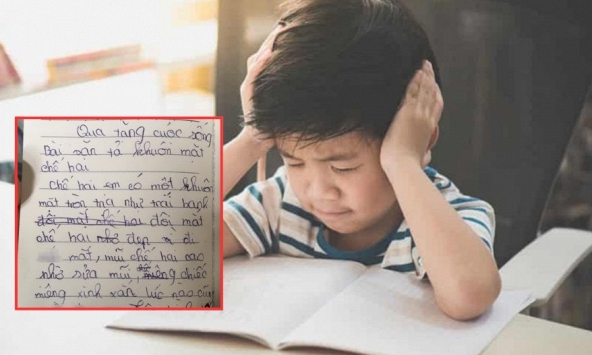 Qua tặng cuộc sống
Bài văn tả khuôn mặt
chế hai
Chế hai em có một khuôn
mặt tròn tra như trái banh
hai đôi mắt
chế hai đẹp vì đi
mắt, mũi chế hai cao
nhờ sửa mũi, miệng chiếc
miệng xinh xắn lúc nào cũng